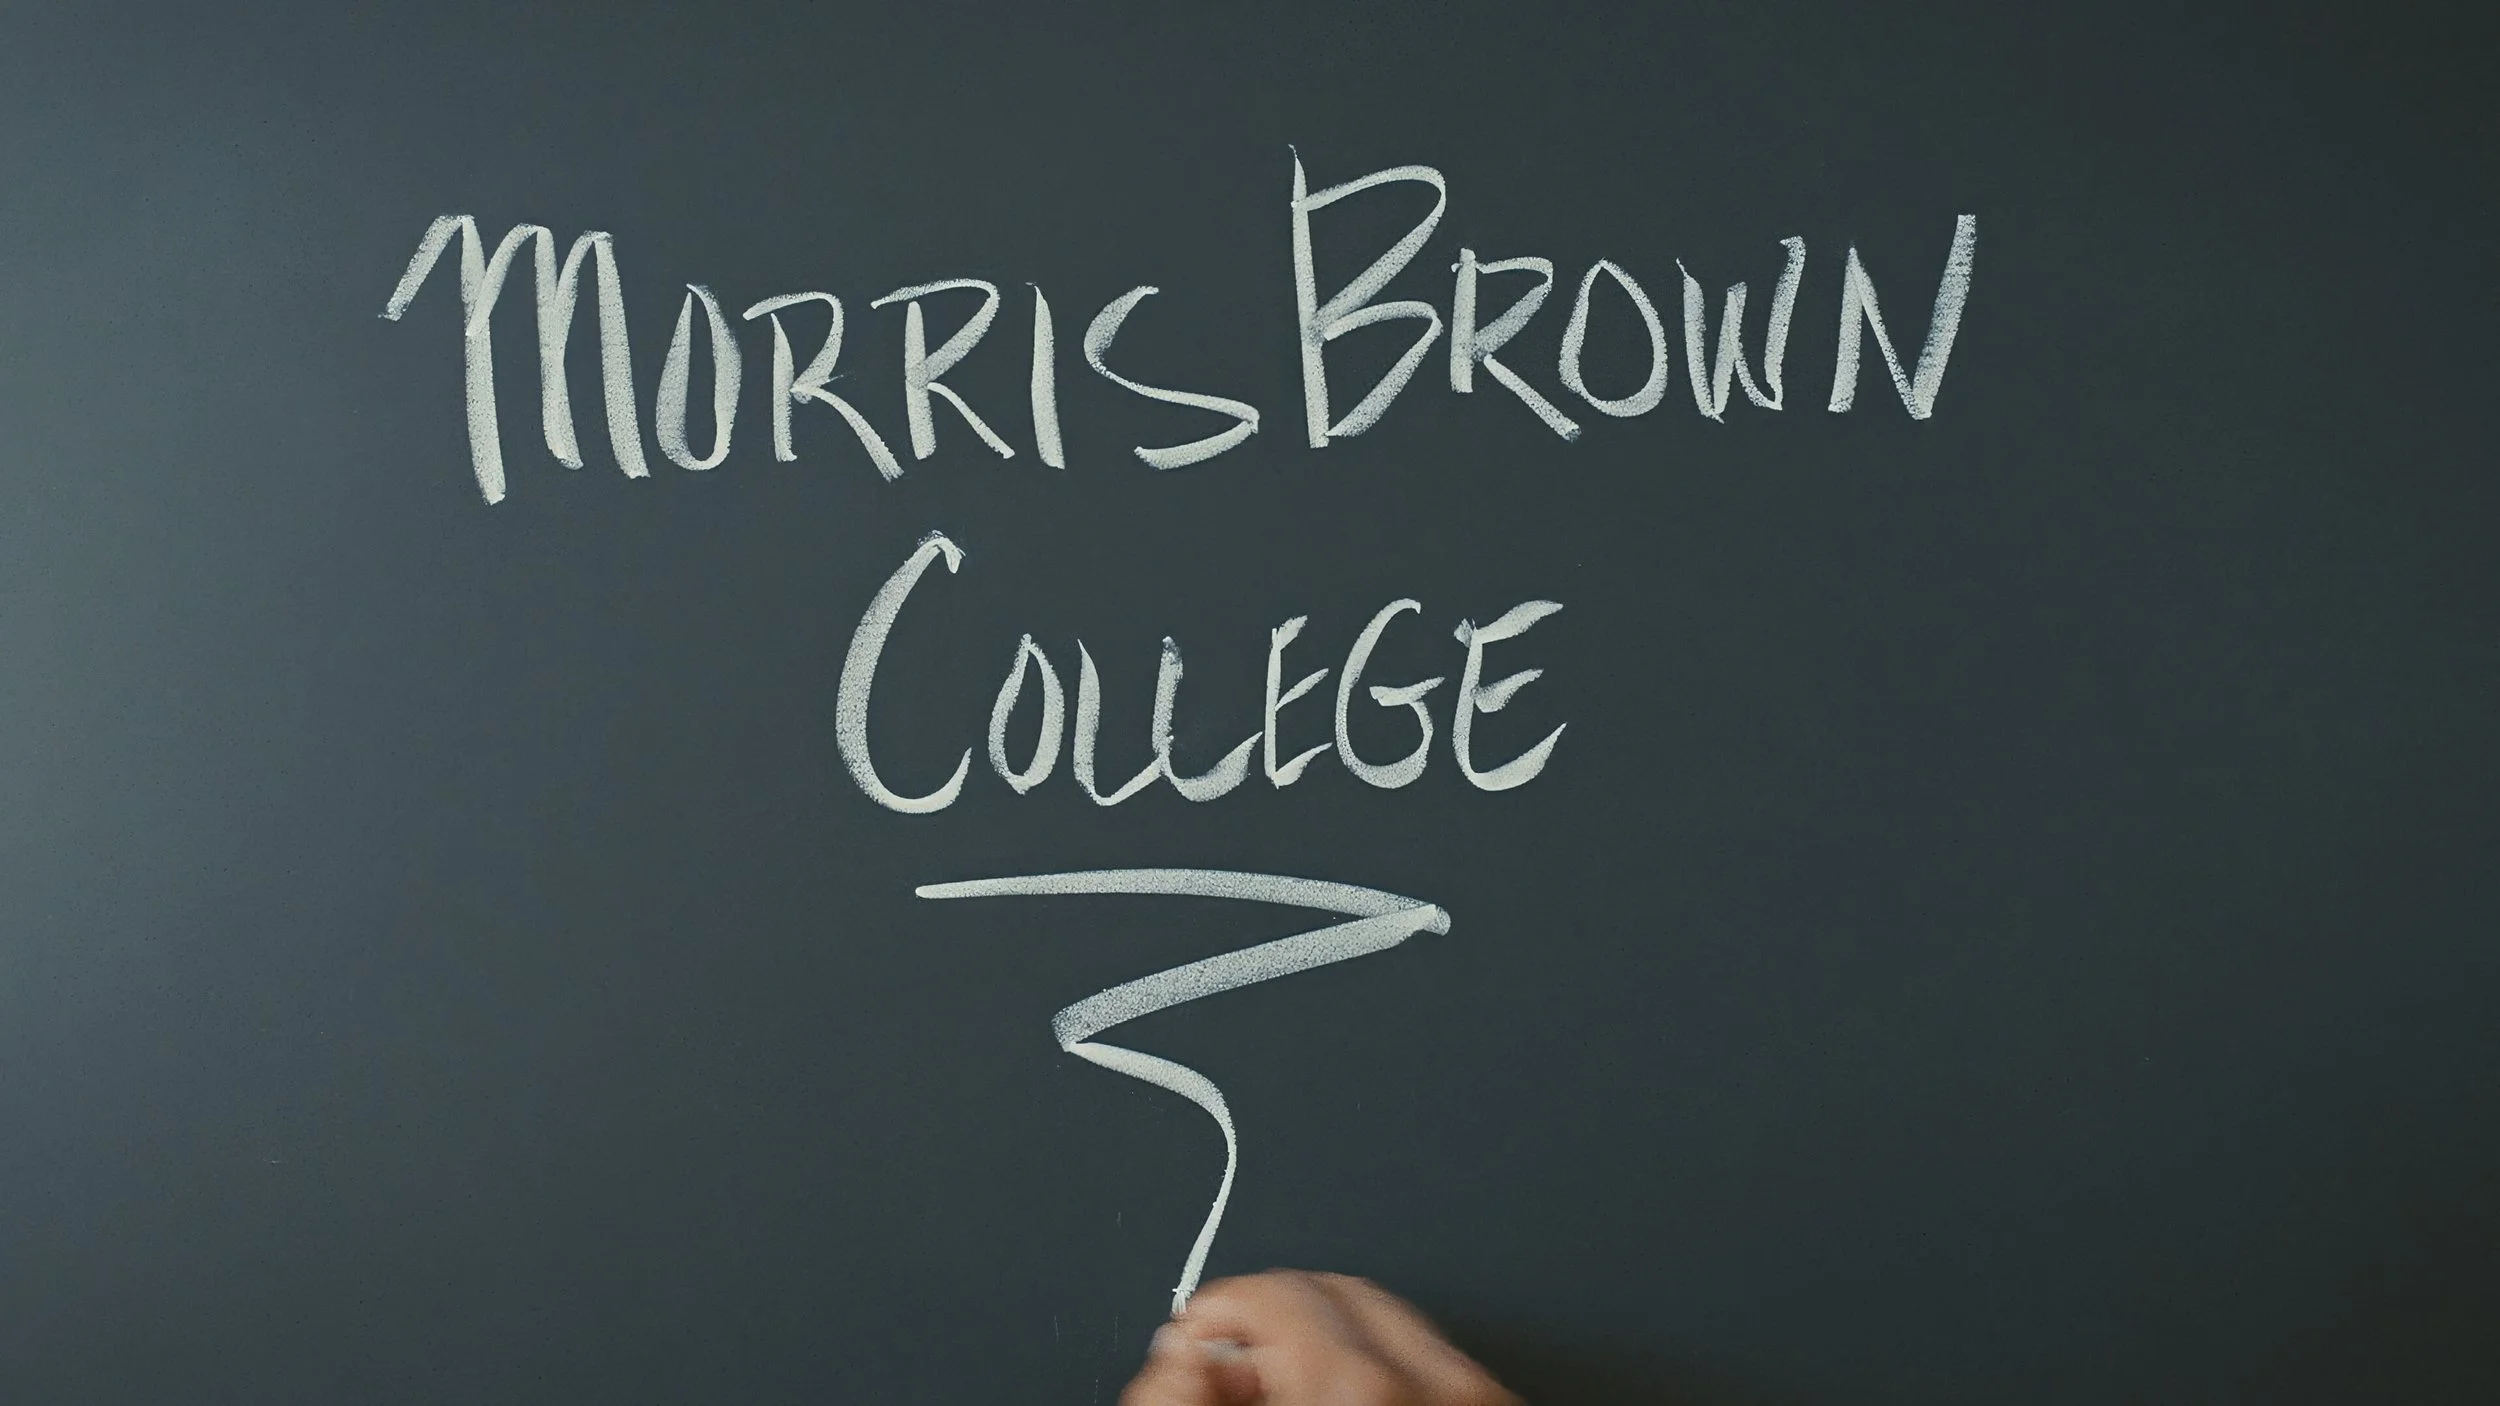 Morris Brown
College